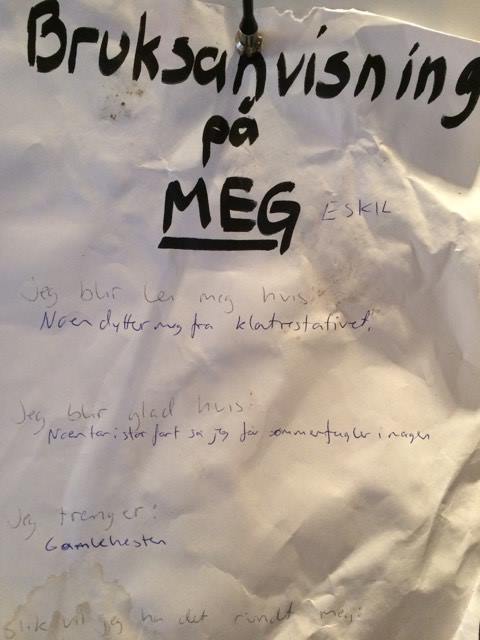 Bruksanvisning
på
MEG ESKIL
Jeg blir lei meg hvis:
Noen dytter meg fra klatrestativet.
Jeg blir glad hvis:
Noen tar i stor fart så jeg får sommerfugler i magen
Jeg trenger:
Gamlehesten
Slik vil jeg ha det rundt meg: